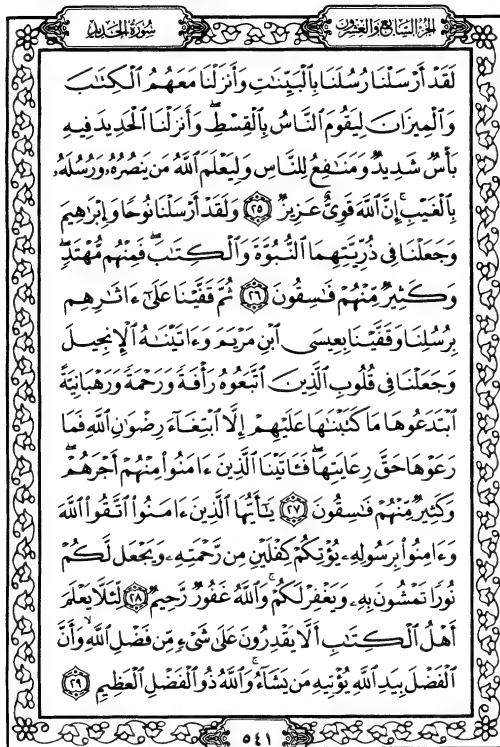 سُورَةُ الحَدِيدِ
الجُزْءُ السَّابِعُ وَالعِشْرُونَ
لَقَدْ أَرْسَلْنَا رُسُلَنَا بِالْبَيِّنَٰتِ وَأَنزَلْنَا مَعَهُمُ الْكِتَٰبَ
وَالْمِيزَانَ لِيَقُومَ النَّاسُ بِالْقِسْطِ ۖ وَأَنزَلْنَا الْحَدِيدَ فِيهِ
بَأْسٌ شَدِيدٌ وَمَنَٰفِعُ لِلنَّاسِ وَلِيَعْلَمَ اللَّهُ مَن يَنصُرُهُۥ وَرُسُلَهُۥ
بِالْغَيْبِ ۚ إِنَّ اللَّهَ قَوِىٌّ عَزِيزٌ ٢٥ وَلَقَدْ أَرْسَلْنَا نُوحًا وَإِبْرَٰهِيمَ
وَجَعَلْنَا فِى ذُرِّيَّتِهِمَا النُّبُوَّةَ وَالْكِتَٰبَ ۖ فَمِنْهُم مُّهْتَدٍ ۖ
وَكَثِيرٌ مِّنْهُمْ فَٰسِقُونَ ٢٦ ثُمَّ قَفَّيْنَا عَلَىٰٓ ءَاثَٰرِهِم
بِرُسُلِنَا وَقَفَّيْنَا بِعِيسَى ابْنِ مَرْيَمَ وَءَاتَيْنَٰهُ الْإِنجِيلَ
وَجَعَلْنَا فِى قُلُوبِ الَّذِينَ اتَّبَعُوهُ رَأْفَةً وَرَحْمَةً وَرَهْبَانِيَّةً
ابْتَدَعُوهَا مَا كَتَبْنَٰهَا عَلَيْهِمْ إِلَّا ابْتِغَآءَ رِضْوَٰنِ اللَّهِ فَمَا
رَعَوْهَا حَقَّ رِعَايَتِهَا ۖ فَـَٔاتَيْنَا الَّذِينَ ءَامَنُوا مِنْهُمْ أَجْرَهُمْ ۖ
وَكَثِيرٌ مِّنْهُمْ فَٰسِقُونَ ٢٧ يَٰٓأَيُّهَا الَّذِينَ ءَامَنُوا اتَّقُوا اللَّهَ
وَءَامِنُوا بِرَسُولِهِۦ يُؤْتِكُمْ كِفْلَيْنِ مِن رَّحْمَتِهِۦ وَيَجْعَل لَّكُمْ
نُورًا تَمْشُونَ بِهِۦ وَيَغْفِرْ لَكُمْ ۚ وَاللَّهُ غَفُورٌ رَّحِيمٌ ٢٨ لِّئَلَّا يَعْلَمَ
أَهْلُ الْكِتَٰبِ أَلَّا يَقْدِرُونَ عَلَىٰ شَىْءٍ مِّن فَضْلِ اللَّهِ ۙ وَأَنَّ
الْفَضْلَ بِيَدِ اللَّهِ يُؤْتِيهِ مَن يَشَآءُ ۚ وَاللَّهُ ذُو الْفَضْلِ الْعَظِيمِ ٢٩
٥٤١